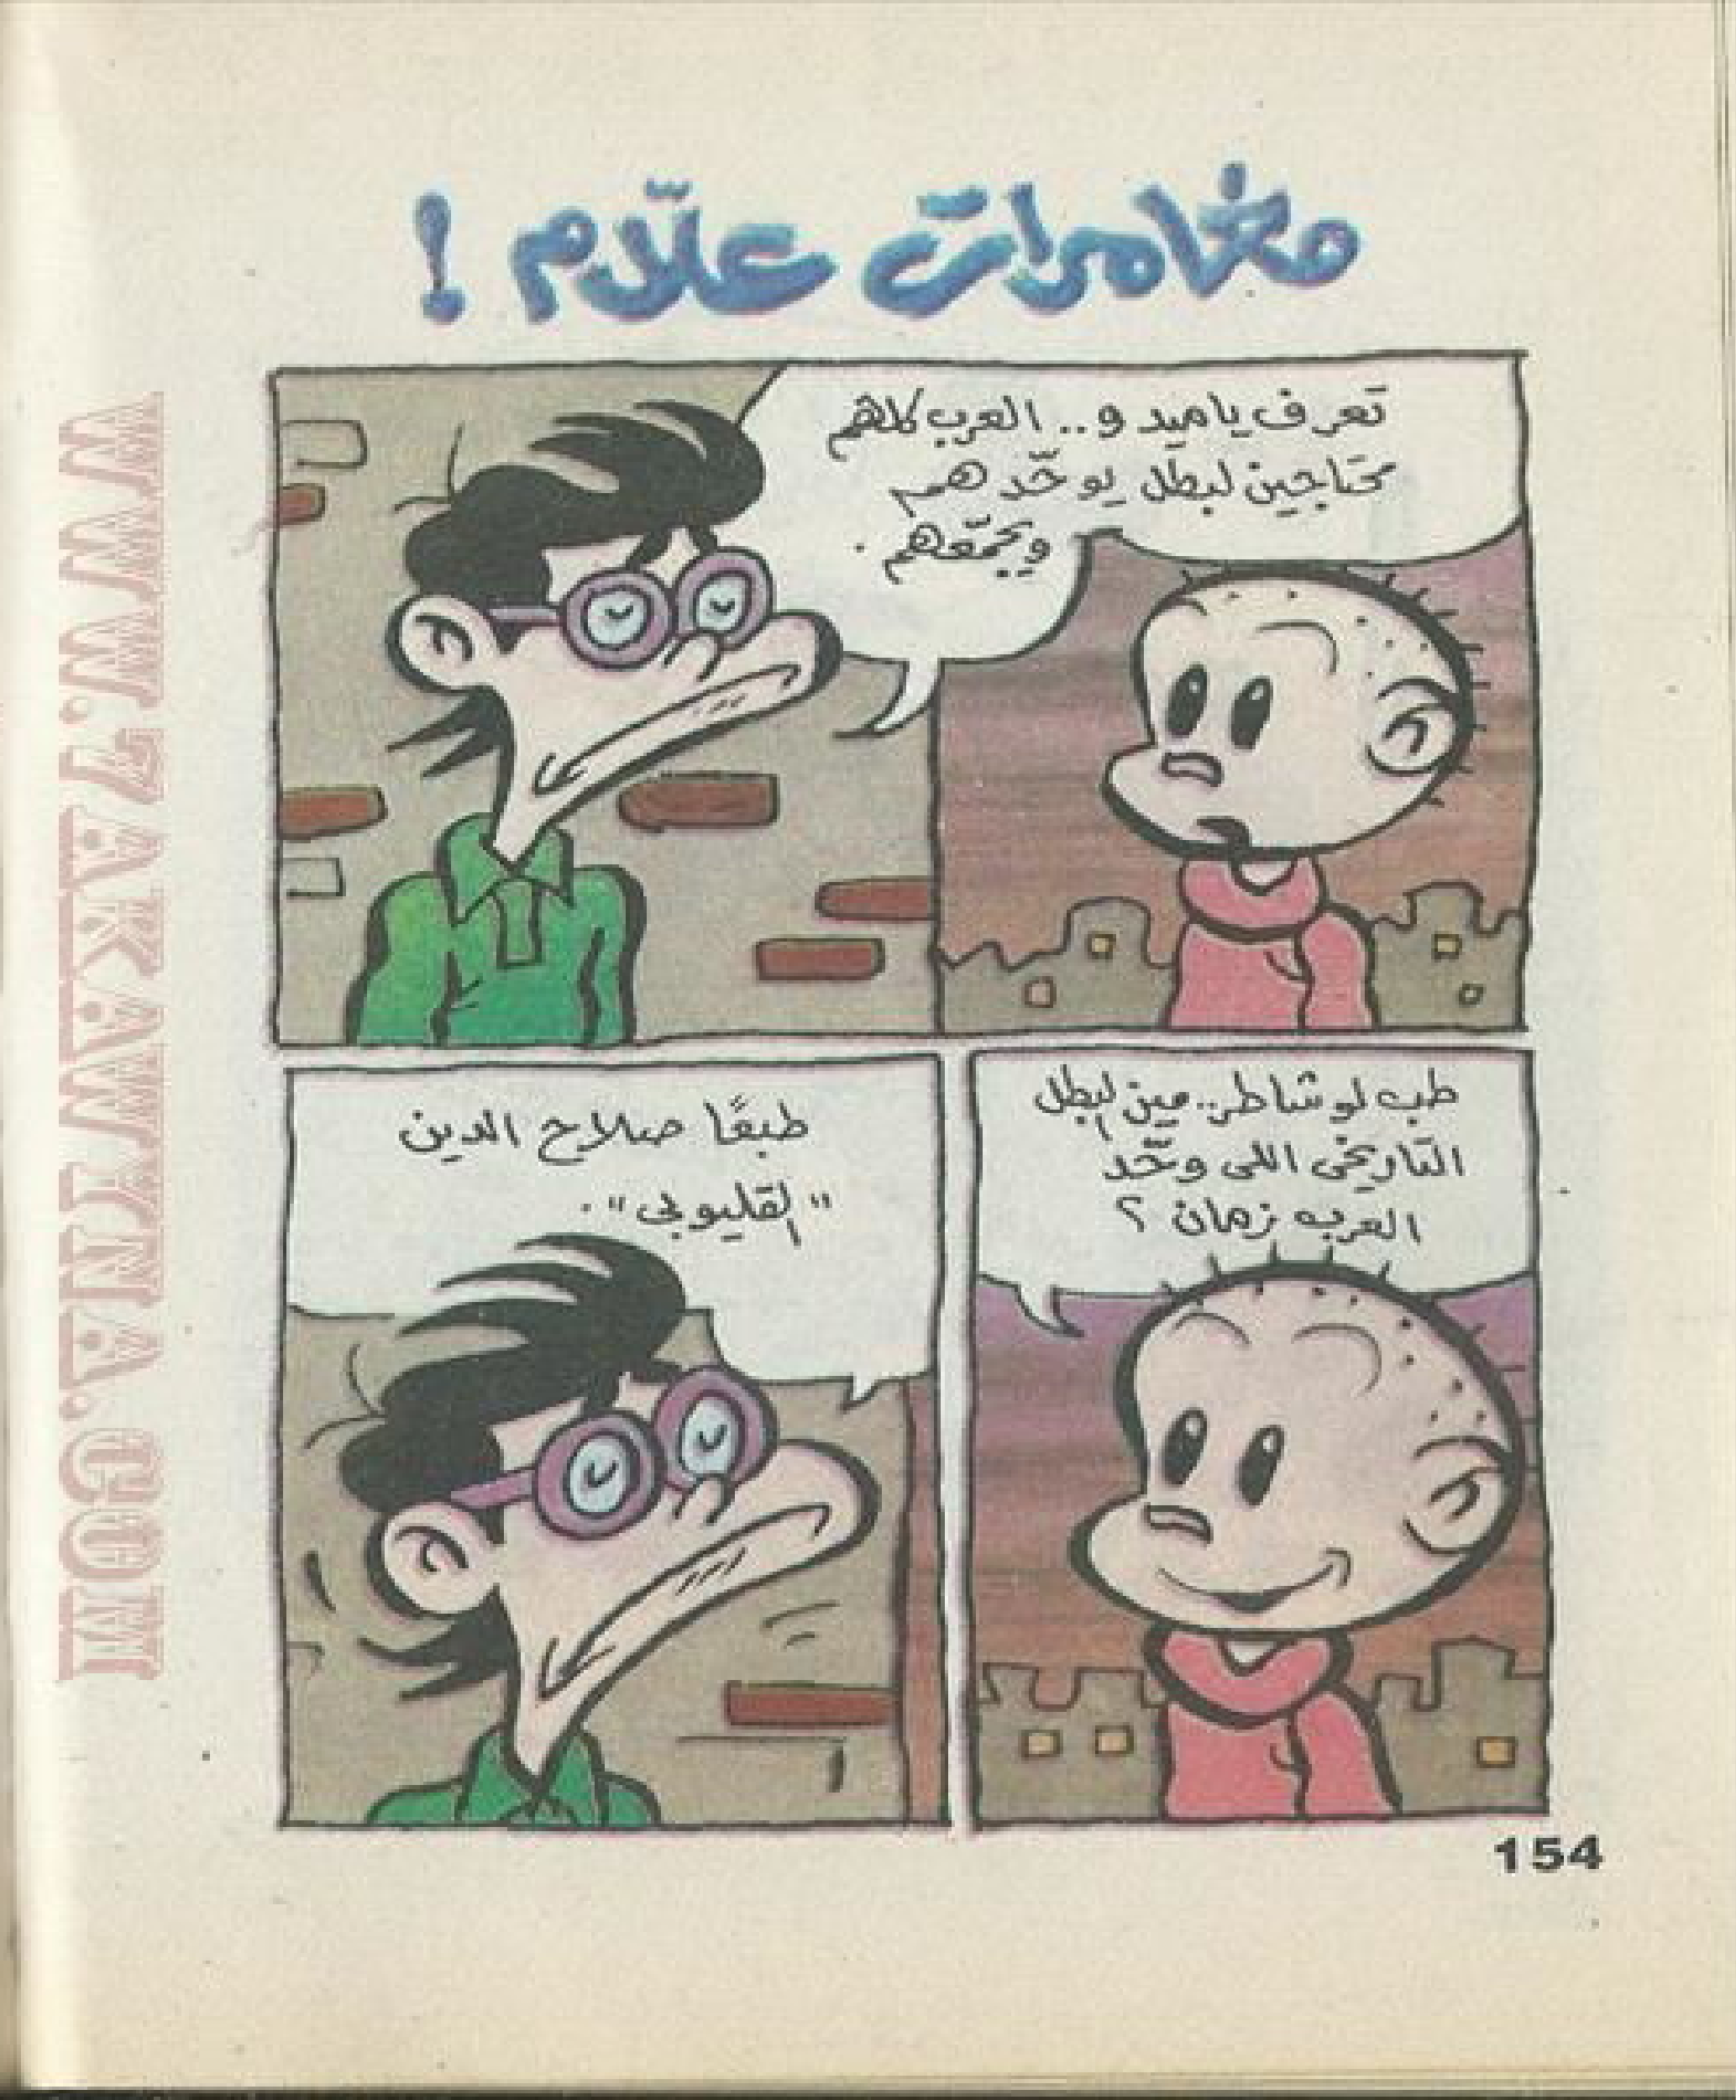 مغامرات علّام !
تعرف يا ميدو.. العرب كلهم
محتاجين لبطل يوحّدهم
ويجمّعهم .
طب لو شاطر.. مين البطل
التاريخى اللى وحّد
العرب زمان ؟
طبعًا صلاح الدين
"القليوبى" .
154
WWW.7AKAWITNA.COM